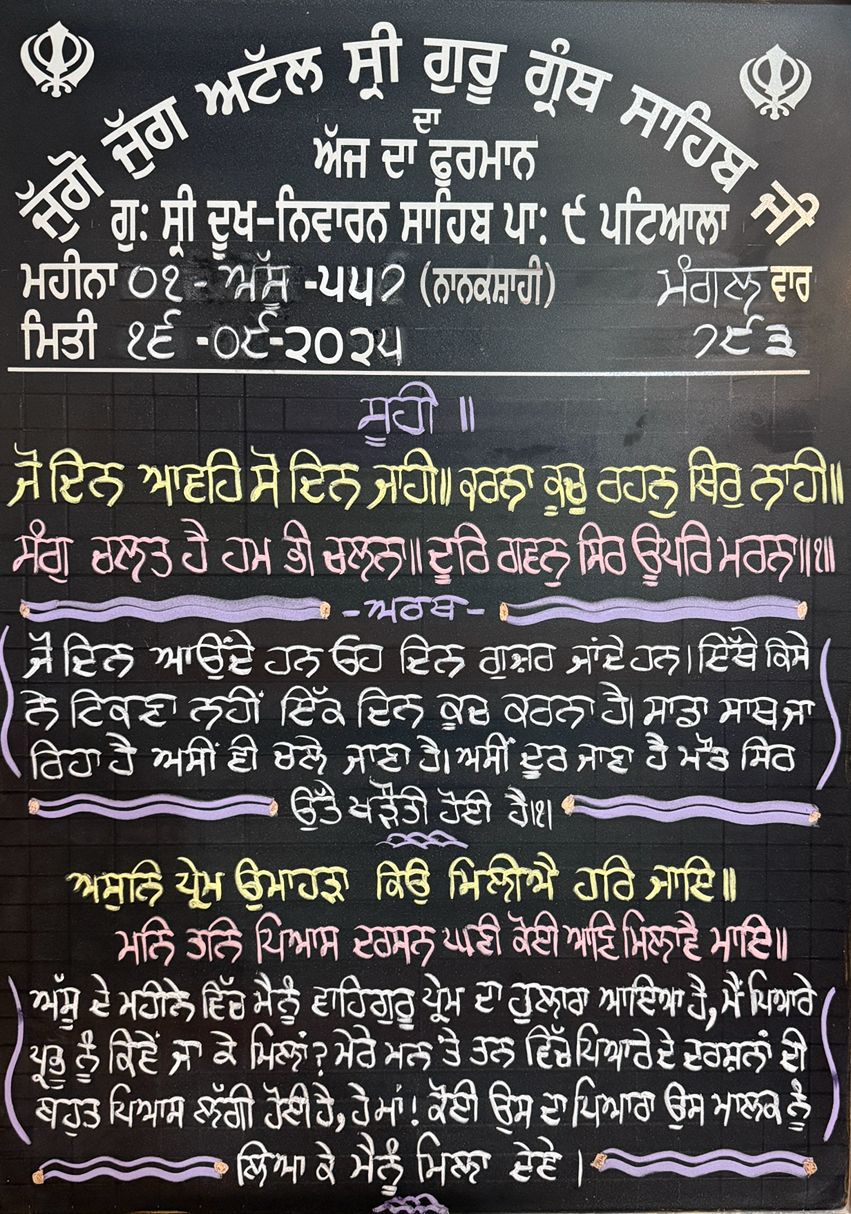 ਜੁੱਗੋ ਜੁੱਗ ਅਟੱਲ ਸ੍ਰੀ ਗੁਰੂ ਗ੍ਰੰਥ ਸਾਹਿਬ ਜੀ
ਦਾ
ਅੱਜ ਦਾ ਫੁਰਮਾਨ
ਗੁ: ਸ੍ਰੀ ਦੂਖ-ਨਿਵਾਰਨ ਸਾਹਿਬ ਪਾ: ੯ ਪਟਿਆਲਾ
ਮਹੀਨਾ ੦੧ - ਅੱਸੂ -੫੫੭ (ਨਾਨਕਸ਼ਾਹੀ) ਮੰਗਲ ਵਾਰ
ਮਿਤੀ ੧੬ -੦੯-੨੦੨੫ ੭੯੩
ਸੂਹੀ ॥
ਜੋ ਦਿਨ ਆਵਹਿ ਸੋ ਦਿਨ ਜਾਹੀ॥ ਕਰਨਾ ਕੂਚੁ ਰਹਨੁ ਥਿਰੁ ਨਾਹੀ॥
ਸੰਗੁ ਚਲਤ ਹੈ ਹਮ ਭੀ ਚਲਨਾ॥ ਦੂਰਿ ਗਵਨੁ ਸਿਰ ਊਪਰਿ ਮਰਨਾ॥੧॥
-ਅਰਥ-
ਜੋ ਦਿਨ ਆਉਂਦੇ ਹਨ ਓਹ ਦਿਨ ਗੁਜ਼ਰ ਜਾਂਦੇ ਹਨ। ਇੱਥੇ ਕਿਸੇ
ਨੇ ਟਿਕਣਾ ਨਹੀਂ ਇੱਕ ਦਿਨ ਕੂਚ ਕਰਨਾ ਹੈ। ਸਾਡਾ ਸਾਥ ਜਾ
ਰਿਹਾ ਹੈ ਅਸੀਂ ਵੀ ਚਲੇ ਜਾਣਾ ਹੈ। ਅਸੀਂ ਦੂਰ ਜਾਣਾ ਹੈ ਮੌਤ ਸਿਰ
ਉੱਤੇ ਖੜੌਤੀ ਹੋਈ ਹੈ।੧।
ਅਸੁਨਿ ਪ੍ਰੇਮ ਉਮਾਹੜਾ ਕਿਉ ਮਿਲੀਐ ਹਰਿ ਜਾਇ॥
ਮਨਿ ਤਨਿ ਪਿਆਸ ਦਰਸਨ ਘਣੀ ਕੋਈ ਆਣਿ ਮਿਲਾਵੈ ਮਾਇ॥
ਅੱਸੂ ਦੇ ਮਹੀਨੇ ਵਿੱਚ ਮੈਨੂੰ ਵਾਹਿਗੁਰੂ ਪ੍ਰੇਮ ਦਾ ਹੁਲਾਰਾ ਆਇਆ ਹੈ, ਮੈਂ ਪਿਆਰੇ
ਪ੍ਰਭੂ ਨੂੰ ਕਿਵੇਂ ਜਾ ਕੇ ਮਿਲਾਂ? ਮੇਰੇ ਮਨ 'ਤੇ ਤਨ ਵਿੱਚ ਪਿਆਰੇ ਦੇ ਦਰਸ਼ਨਾਂ ਦੀ
ਬਹੁਤ ਪਿਆਸ ਲੱਗੀ ਹੋਈ ਹੈ, ਹੇ ਮਾਂ! ਕੋਈ ਉਸ ਦਾ ਪਿਆਰਾ ਉਸ ਮਾਲਕ ਨੂੰ
ਲਿਆ ਕੇ ਮੈਨੂੰ ਮਿਲਾ ਦੇਵੇ।